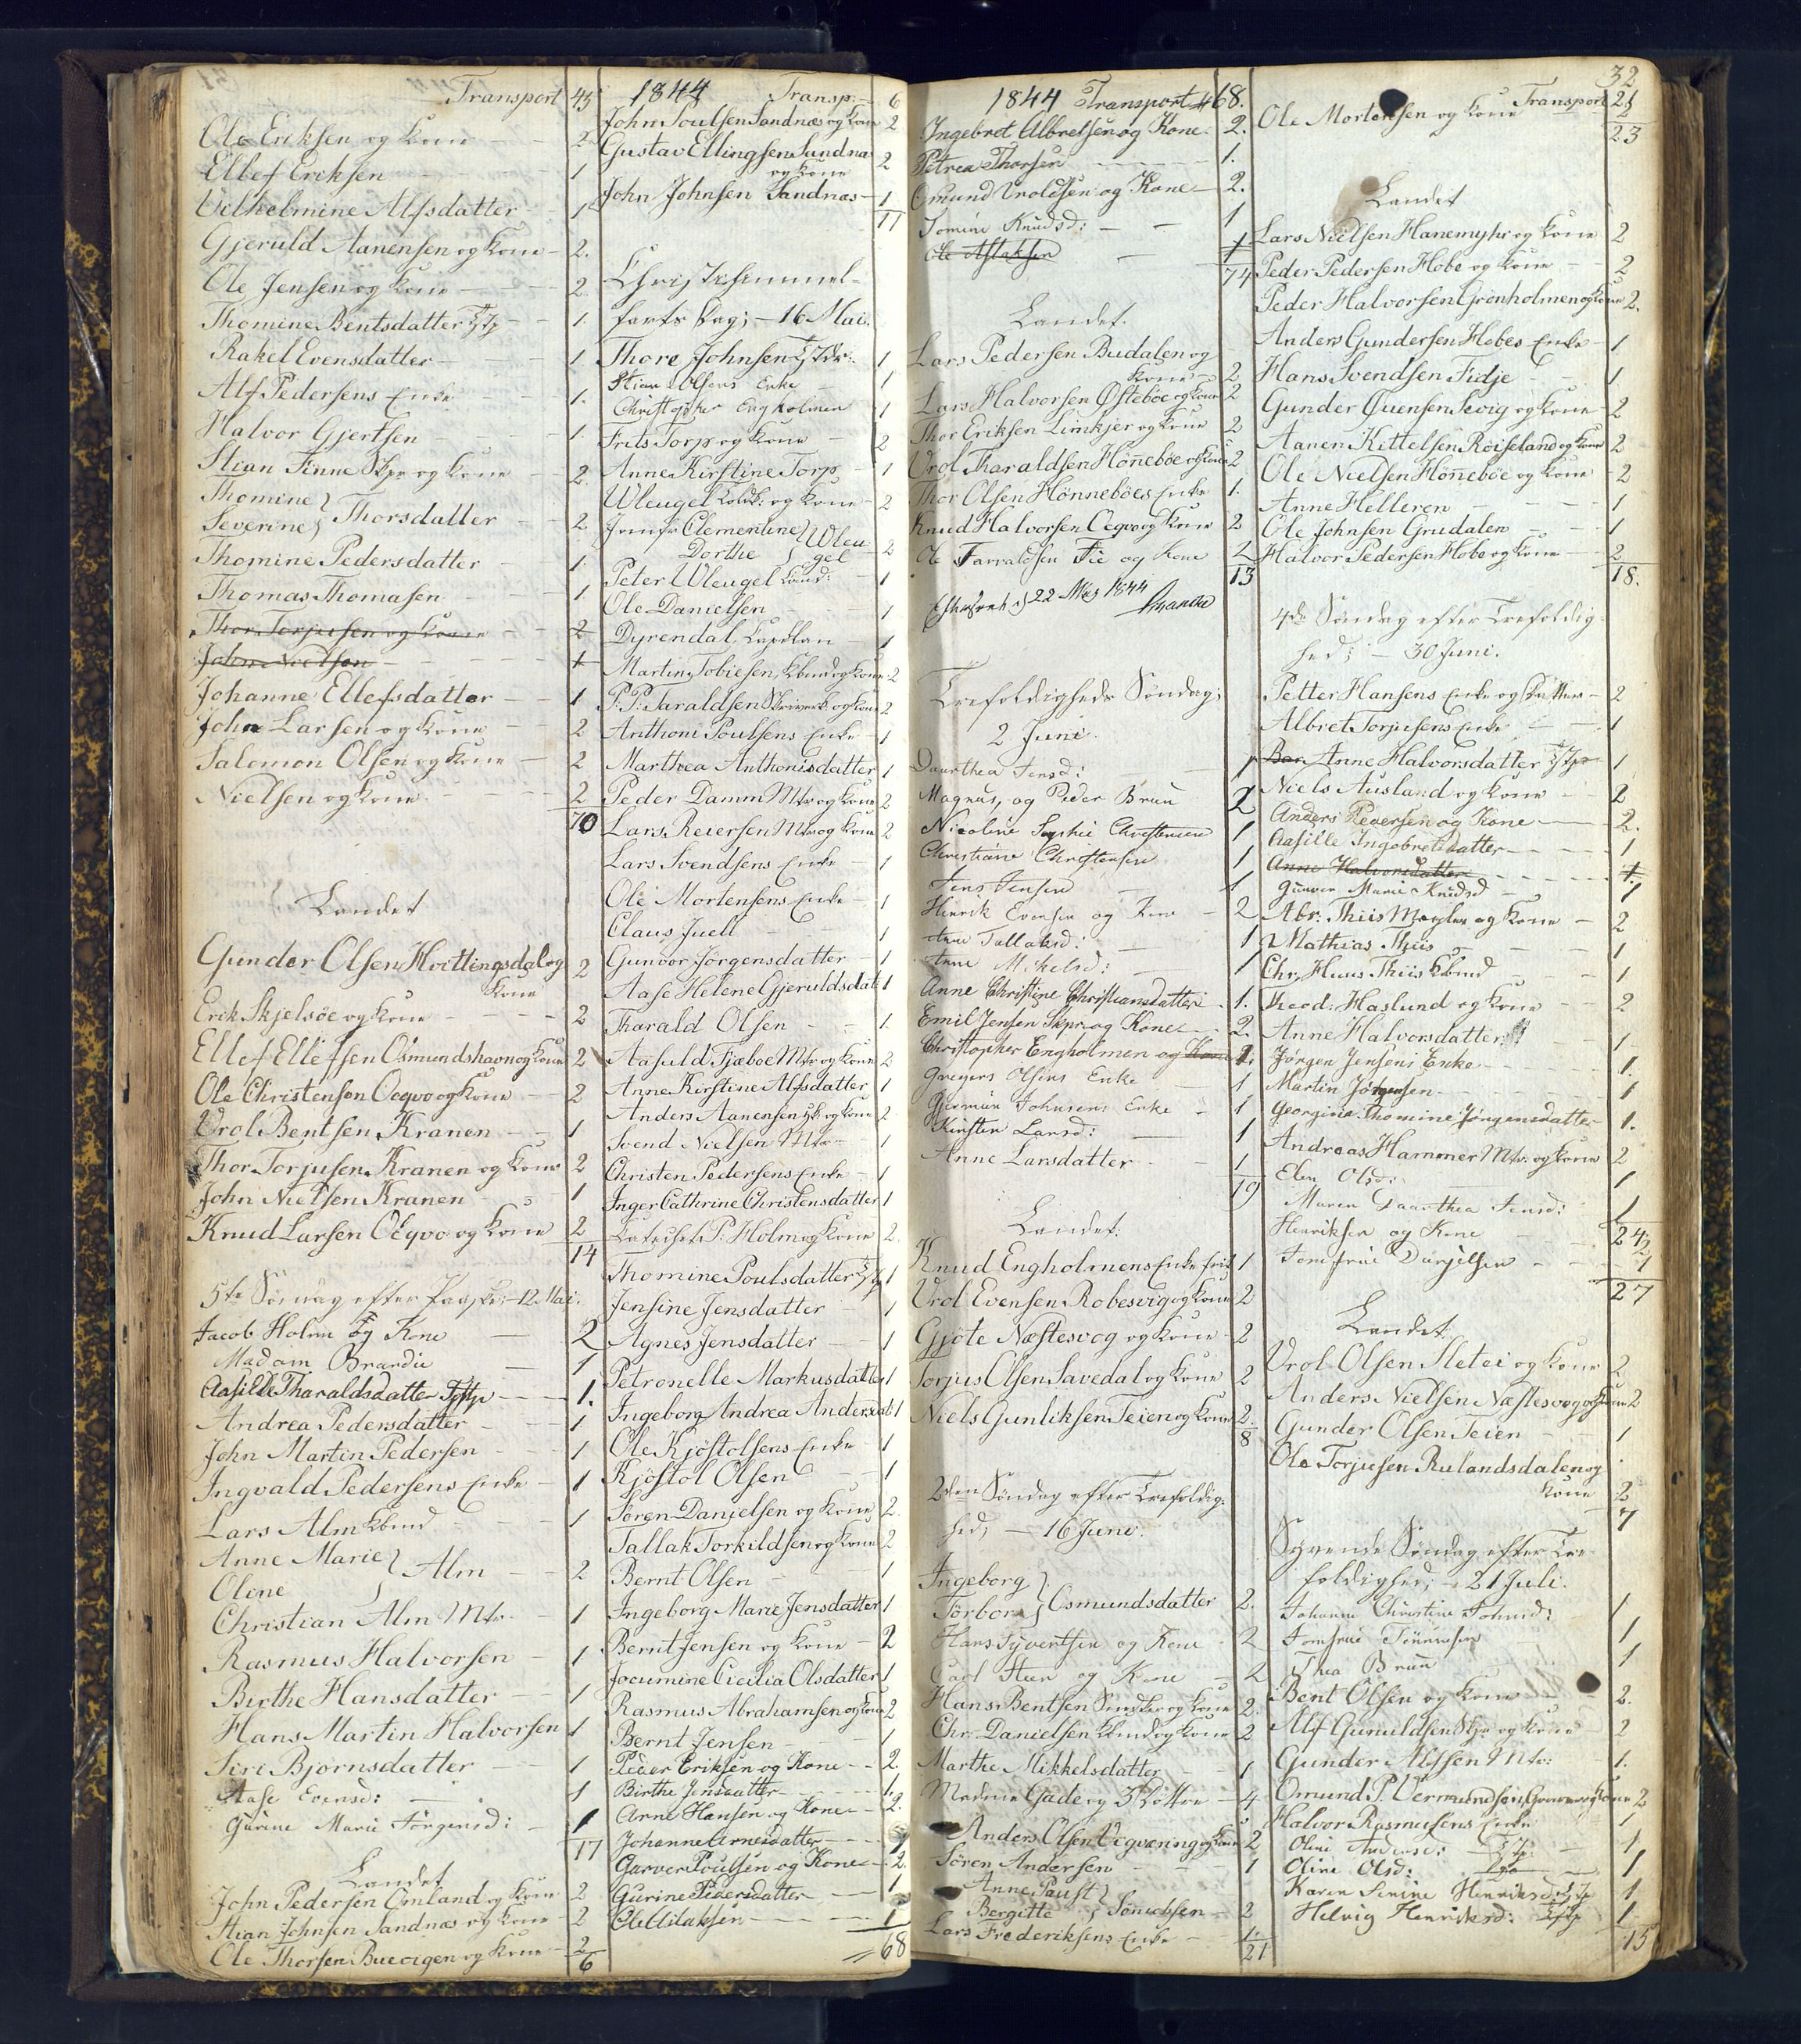 Transport 45
Ole Eriksen og Kone 2
Ellef Eriksen 1
Vilhelmine Alfsdatter 1
Gjeruld Aanensen og Kone 2.
Ole Jensen og Kone 2
Thomine Bentsdatter Tjtp 1.
Rakel Evensdatter 1
Alf Pedersens Enke 1.
Halvor Gjertsen 1
Stian Finne Skpr og Kone 2.
Thomine }
Severine } Thorsdatter 2
Thomine Pedersdatter 1.
Thomas Thomasen 1
Thor Torjusen og Kone 2
John Nielsen 1
Johanne Ellefsdatter 1
John Larsen og Kone 2
Salomon Olsen og Kone 2
Nielsen og Kone 2
70
Landet
Gunder Olsen Hvittingsdal og
Kone 2
Erik Skjelsöe og Kone 2
Ellef Ellefsen Osmundshavn og Kone 2
Ole Christensen Ocqvo og Kone 2
Vrol Bentsen Kranen 1
Thor Torjusen Kranen og Kone 2
John Nielsen Kranen 1
Knud Larsen Ocqvo og Kone 2
14
5te Söndag efter Paaske; 12 Mai.
Jacob Holm og Kone 2
Madam Brandie 1
Aasille Tharaldsdatter Tjstp 1.
Andrea Pedersdatter 1
John Martin Pedersen 1
Ingvald Pedersens Enke 1
Lars Alm Kbmd 1
Anne Marie }
Oline } Alm 2
Christian Alm Mtr. 1
Rasmus Halvorsen 1
Birthe Hansdatter 1
Hans Martin Halvorsen 1
Siri Bjørnsdatter 1
Aase Evensd: 1
Gurine Marie Jörgensd: 1
17
Landet
John Pedersen Omland og Kone 2
Stian Johnsen Sandnæs og Kone 2
Ole Thorsen Buevigen og Kone 2
6
1844 Transp: 6
John Poulsen Sandnæs og Kone 2
Gustav Ellingsen Sandnæs
og Kone 2
John Johnsen Sandnæs 1
11
Christi Himmel-
farts Dag; 16 Mai.
Thore Johnsen Tjtdr: 1
Stian Olsens Enke 1
Christopher Engholmen 1
Frits Torp og Kone 2
Anne Kirstine Torp 1
Wleugel Lodk: og Kone 2
Jomfr Clementine }
Dorthe } Wleugel 2
Peter Wleugel Cand: 1
Ole Danielsen 1
Dyrendal Capellan 1
Martin Tobiesen Kbmd og Kone 2
P. P. Taraldsen Skriverk. og Kone 2
Anthoni Poulsens Enke 1
Marthea Anthonisdatter 1
Peder Damm Mtr og Kone 2
Lars Reiersen Mtr og Kone 2
Lars Svendsens Enke 1
Ole Mortensens Enke 1
Claus Juell 1
Gunvor Jørgensdatter 1
Aase Helene Gjeruldsdat 1
Tharald Olsen 1
Aasuld Fjæboe Mtr og Kone 2
Anne Kirstine Alfsdatter 1
Anders Aanensen og Kone 2
Svend Nielsen Mtr 1
Christen Pedersens Enke 1
Inger Cathrine Christensdatter 1
P. Holm og Kone 2.
Thomine Poulsdatter Tjtp 1
Jensine Jensdatter 1
Agnes Jensdatter 1
Petronelle Markusdatter 1
Ingeborg Andrea Andersdat 1
Ole Kjøstolsens Enke 1
Kjøstol Olsen 1
Søren Danielsen og Kone 2.
Tallak Torkildsen og Kone 2
Bernt Olsen 1
Ingeborg Marie Jensdatter 1
Bernt Jensen og Kone 2
Jocumine Cicilia Olsdatter 1
Rasmus Abrahamsen og Kone 2
Bernt Jensen 1
Peder Eriksen og Kone 2.
Birthe Jensdatter 1.
Arne Hansen og Kone 2.
Johanne Arnesdatter 1
Garver Poulsen og Kone 2.
Gurine Pedersdatter 1
Ole Aslaksen 1
68
1844 Transport 68.
Ingebret Albretsen og Kone 2.
Petrea Thorsen 1.
Omund Vroldsen og Kone 2.
Tomine Knudsd: 1
Ole Aslaksen 1
74
Landet.
Lars Pedersen Budalen og
Kone 2
Lars Halvorsen Østebøe og Kone 2
Thor Eriksen Limkjer og Kone 2
Vrol Tharaldsen Hönnebøe og Kone 2
Thor Olsen Hönnebøes Enke 1.
Knud Halvorsen Ocqvo og Kone 2
Ole Tarraldsen Fie og Kone 2
13
22 May 1844
Trefoldigheds Söndag;
2 Juni.
Daarthea Jensd: 1
Magnus, og Peder Brun 2
Nicoline Sophie Christensen 1
Christiane Christensen 1
Jens Jensen 1
Henrik Evensen og Kone 2
Anne Tallaksd: 1
Anne Mikelsd: 1
Anne Christine Christiansdatter 1.
Emil Jensen Skpr og Kone 2.
Christopher Engholmen og Kone 1.
Gregers Olsens Enke 1
Johnsens Enke 1
Kirsten Larsd: 1
Anne Larsdatter 1
19
Landet.
Knud Engholmens Enke frisk 1
Vrol Evensen Robesvig og Kone 2
Gjöte Næstesvog og Kone 2
Torjus Olsen Savedal og Kone 2
Niels Gunliksen Teien og Kone 2
8
2den Söndag efter Trefoldig-
hed; 16 Juni.
Ingeborg }
Törbor } Osmundsdatter 2.
Hans Syvertsen og Kone 2
Carl Steen og Kone 2
Hans Bentsen Snedker og Kone 2.
Chr. Danielsen Kbmd og Kone 2
Marthe Mikkelsdatter 1
Madam Gade og 3 Døttre 4
Anders Olsen Vegværing og Kone 2
Sören Andersen 1
Anne Paust }
Bergitte } Sönichsen 2
Lars Frederiksens Enke 1.
21
32
Transport 21
Ole Mortensen og Kone 2
23
Landet
Lars Nielsen Hanemyhr og Kone 2
Peder Pedersen Hobe og Kone 2
Peder Halvorsen Grønholmen og Kone 2.
Anders Gundersen Hobes Enke 1
Hans Svendsen Fidje 1
Gunder Quensen Sevig og Kone 2
Aanen Kittelsen Röiseland og Kone 2
Ole Nielsen Hönnebøe og Kone 2
Anne Helleren 1
Ole Johnsen Grudalen 1
Halvor Pedersen Hobe og Kone 2
18.
4de Söndag efter Trefoldig-
hed; 30 Juni.
Petter Hansens Enke og Datter 2
Albret Torjusens Enke 1
Anne Halvorsdatter Tjtp 1
Niels Ausland og Kone 2
Anders Reiersen og Kone 2.
Aasille Ingebretsdatter 1
Anne Halvorsdatter 1.
Gunvor Marie Knudsd 1
Abr. Thiis Mægler og Kone 2
Mathias Thiis 1
Chr. Huus Thiis Kbmd 1
Theod: Haslund og Kone 2
Anne Halvorsdatter 1
Jørgen Jensens Enke 1.
Martin Jørgensen 1
Georgine Thomine Jørgensdatter 1.
Andreas Hammer Mtr. og Kone 2
Elen Olsd: 1
Maren Daarthea Jensd: 1
24
Henriksen og Kone 2
Jomfrue 1
27
Landet.
Vrol Olsen Sletei og Kone 2
Anders Nielsen Næstesvog og Kone 2
Gunder Olsen Teien 1
Ole Torjusen Rulandsdalen og
Kone 2
7
Syvende Söndag efter Tre-
foldighed; 21 Juli.
Johanne Christine Johnsd: 1
Jomfrue 1
Thea Brun 1
Bent Olsen og Kone 2.
Alf Gunuldsen Skpr og Kone 2
Gunder Alfsen Mtr: 1.
Omund P. Vermundsen Garver og Kone 2
Halvor Rasmusens Enke 1
Oline Andersd: Tjtp 1
Oline Olsd: 1
Karen Sirine Henriksd: Tjtp 1
Helvig Henriksd: Tjtp 1
15